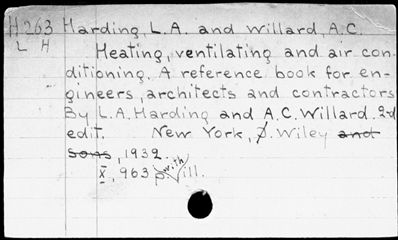 H263 Harding, L.A. and Willard, A.C.
L H Heating, ventilating and air con-
ditioning. A reference book for en-
gineers, architects and contractors
By L.A. Harding and A.C. Willard. 2d
edit. New York, J. Wiley and
Sons, 1932.
X, 963 p. with ill.